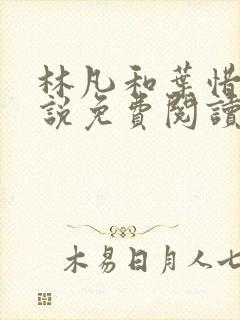 林凡和葉惜
説免費閱讀
木易日月人七